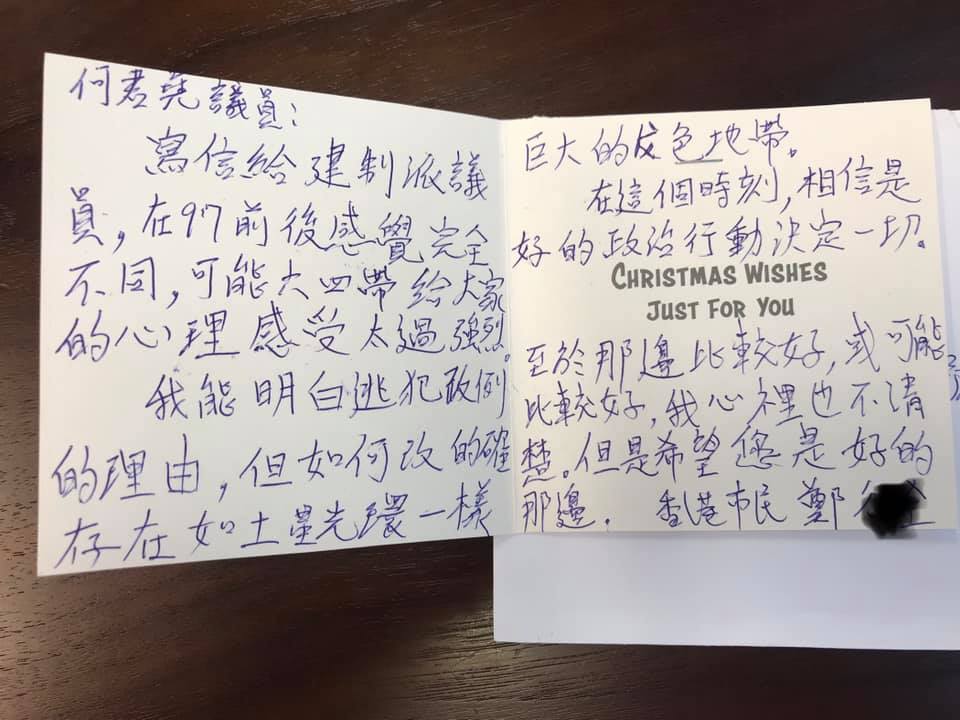 何君堯議員：
寫信給建制派議
員，在97前後感覺完全
不同，可能六四帶給大家
的心理感受太過強烈。
我能明白逃犯改例
的理由，但如何改的確
存在如土星光環一樣
巨大的灰色地帶。
在這個時刻，相信是
好的政治行動決定一切。
CHRISTMAS WISHES
JUST FOR YOU
至於那邊比較好，或可能
比較好，我心裡也不清
楚。但是希望您是好的
那邊。 香港市民 鄭